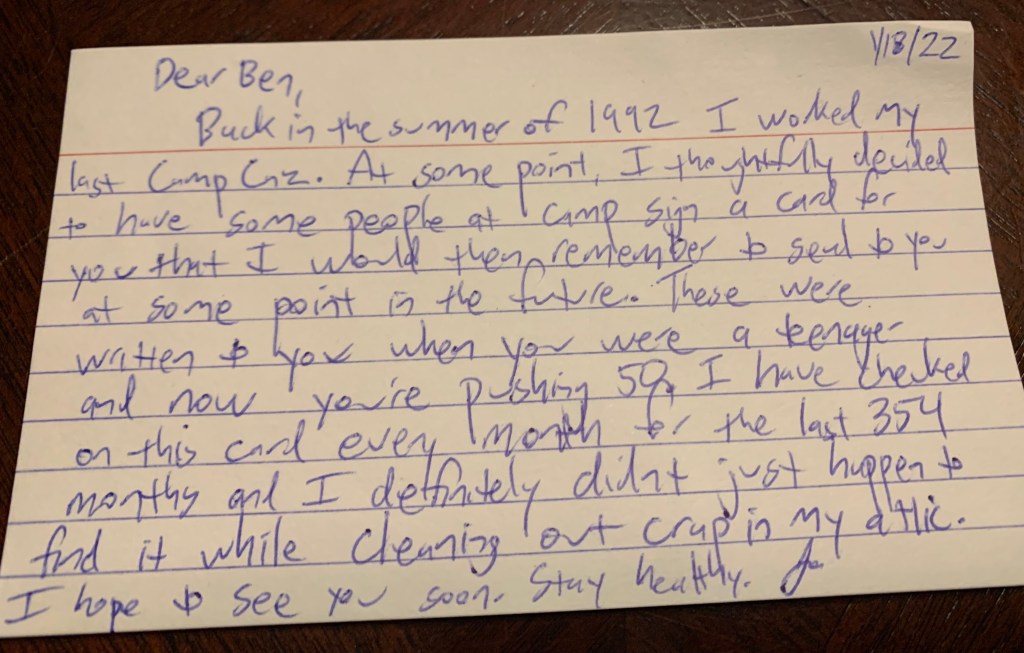 1/18/22
Dear Ben,
Back in the summer of 1992 I worked my
last Camp Caz. At some point, I thoughtfully decided
to have some people at camp sign a card for
you that I would then remember to send to you
at some point in the future. These were
written to you when you were a teenager
and now you're pushing 50. I have checked
on this card every month for the last 354
months and I definitely didnt just happen to
find it while cleaning out crap in my attic.
I hope to see you soon. Stay healthy.